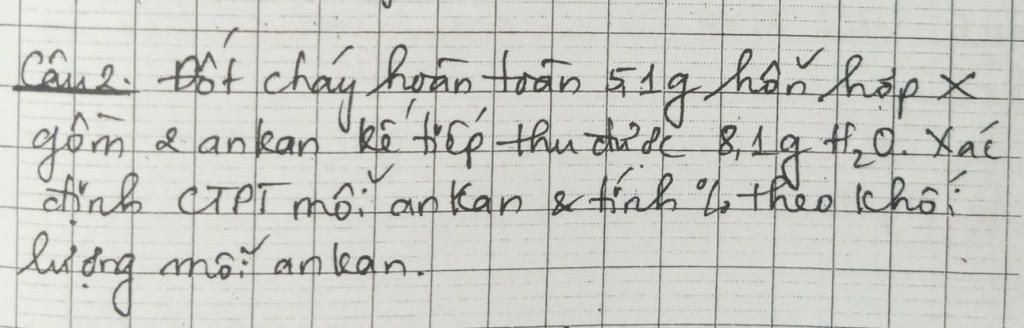 Câu 2. Đốt cháy hoàn toàn 5,1g hỗn hợp X
gồm 2 ankan kế tiếp thu được 8,1g H₂O. Xác
định CTPT mỗi ankan & tính % theo khối
lượng mỗi ankan.